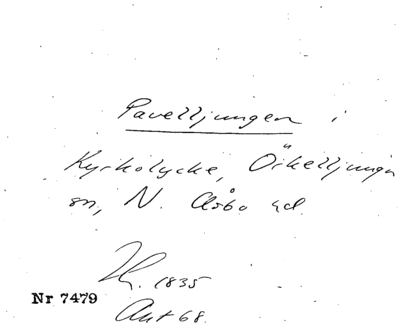 Pavelljungen i
Kyrkolycke, Örkelljunga
sn, N. Åsbo hd.
H. 1835
Nr 7479
Ant 68.